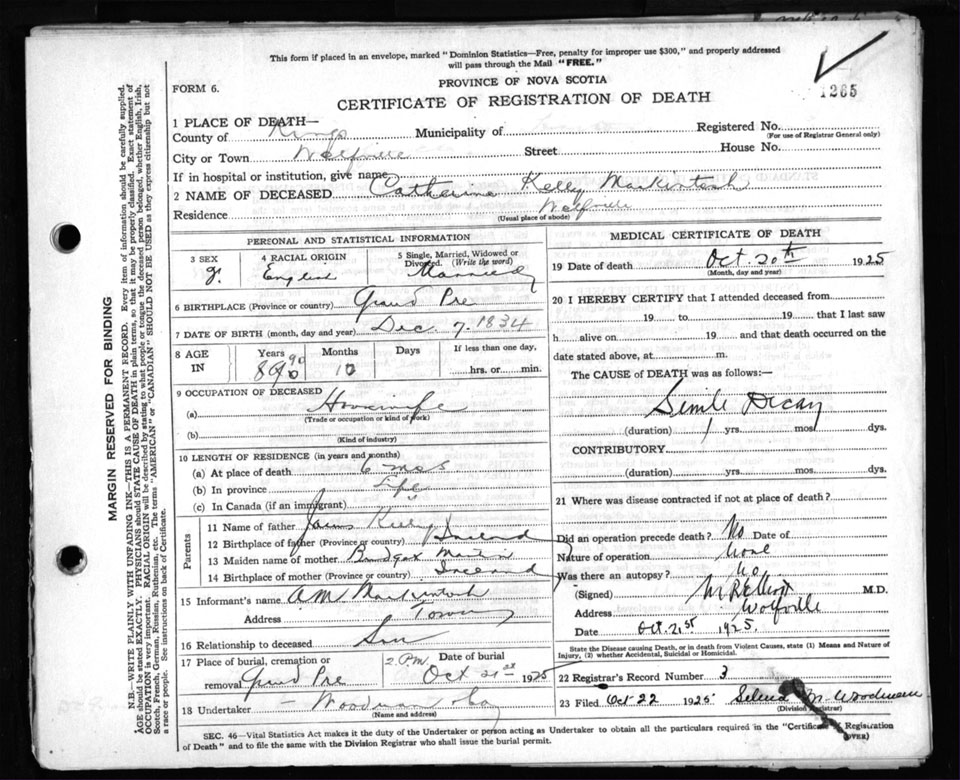 This form if placed in an envelope, marked "Dominion Statistics—Free, penalty for improper use $300," and properly addressed
will pass through the Mail "FREE."
1265
PROVINCE OF NOVA SCOTIA
FORM 6.
CERTIFICATE OF REGISTRATION OF DEATH
1 PLACE OF DEATH—
County of Kings Municipality of Registered No.
(For use of Registrar General only)
City or Town Wolfville Street House No.
If in hospital or institution, give name
2 NAME OF DECEASED Catherine Kelly Mackintosh
Residence Wolfville
(Usual place of abode)
PERSONAL AND STATISTICAL INFORMATION
3 SEX 4 RACIAL ORIGIN 5 Single, Married, Widowed or Divorced. (Write the word)
English Married
6 BIRTHPLACE (Province or country) Grand Pre
7 DATE OF BIRTH (month, day and year) Dec. 7. 1834
8 AGE IN Years Months Days If less than one day,
90 10 hrs. or min.
9 OCCUPATION OF DECEASED
(a) Housewife
(Trade or occupation or kind of work)
(b)
(Kind of industry)
10 LENGTH OF RESIDENCE (in years and months)
(a) At place of death 6 mos
(b) In province Life
(c) In Canada (if an immigrant) "
Parents
11 Name of father James Kelly
12 Birthplace of father (Province or country) Ireland
13 Maiden name of mother
14 Birthplace of mother (Province or country) Ireland
15 Informant's name A M Mackintosh
Address Town
16 Relationship to deceased Son
17 Place of burial, cremation or removal Grand Pre 2. P.M. Date of burial Oct 21st 1925
18 Undertaker – Woodman
(Name and address)
MEDICAL CERTIFICATE OF DEATH
19 Date of death Oct. 20th 1925
(Month, day and year)
20 I HEREBY CERTIFY that I attended deceased from
19 to 19 that I last saw
h alive on 19 and that death occurred on
date stated above, at m.
The CAUSE of DEATH was as follows:—
Senile Decay
(duration) 1 yrs. mos. dys.
CONTRIBUTORY
(duration) yrs. mos. dys.
21 Where was disease contracted if not at place of death?
Did an operation precede death? No Date of
Nature of operation None
Was there an autopsy? no
(Signed) M R Elliott M.D.
Address Wolfville
Date Oct. 21st 1925.
State the Disease causing Death, or in death from Violent Causes, state (1) Means and Nature of
Injury, (2) whether Accidental, Suicidal or Homicidal.
22 Registrar's Record Number 3
23 Filed Oct 22 1925 Selena M. Woodman
(Division Registrar)
SEC. 46—Vital Statistics Act makes it the duty of the Undertaker or person acting as Undertaker to obtain all the particulars required in the "Certificate of Registration
of Death" and to file the same with the Division Registrar who shall issue the burial permit.
(OVER)
MARGIN RESERVED FOR BINDING
N.B.—WRITE PLAINLY WITH UNFADING INK—THIS IS A PERMANENT RECORD. Every item of information should be carefully supplied.
AGE should be stated EXACTLY. PHYSICIANS should STATE CAUSE OF DEATH in plain terms, so that it may be properly classified. Exact statement of
OCCUPATION is very important. RACIAL ORIGIN will be described by stating to what people or tongue the deceased person belonged, whether English, Irish,
Scotch, French, German, Russian, Ruthenian, etc. The terms "AMERICAN" or "CANADIAN" SHOULD NOT BE USED as they express citizenship but not
a race or people. See instructions on back of Certificate.